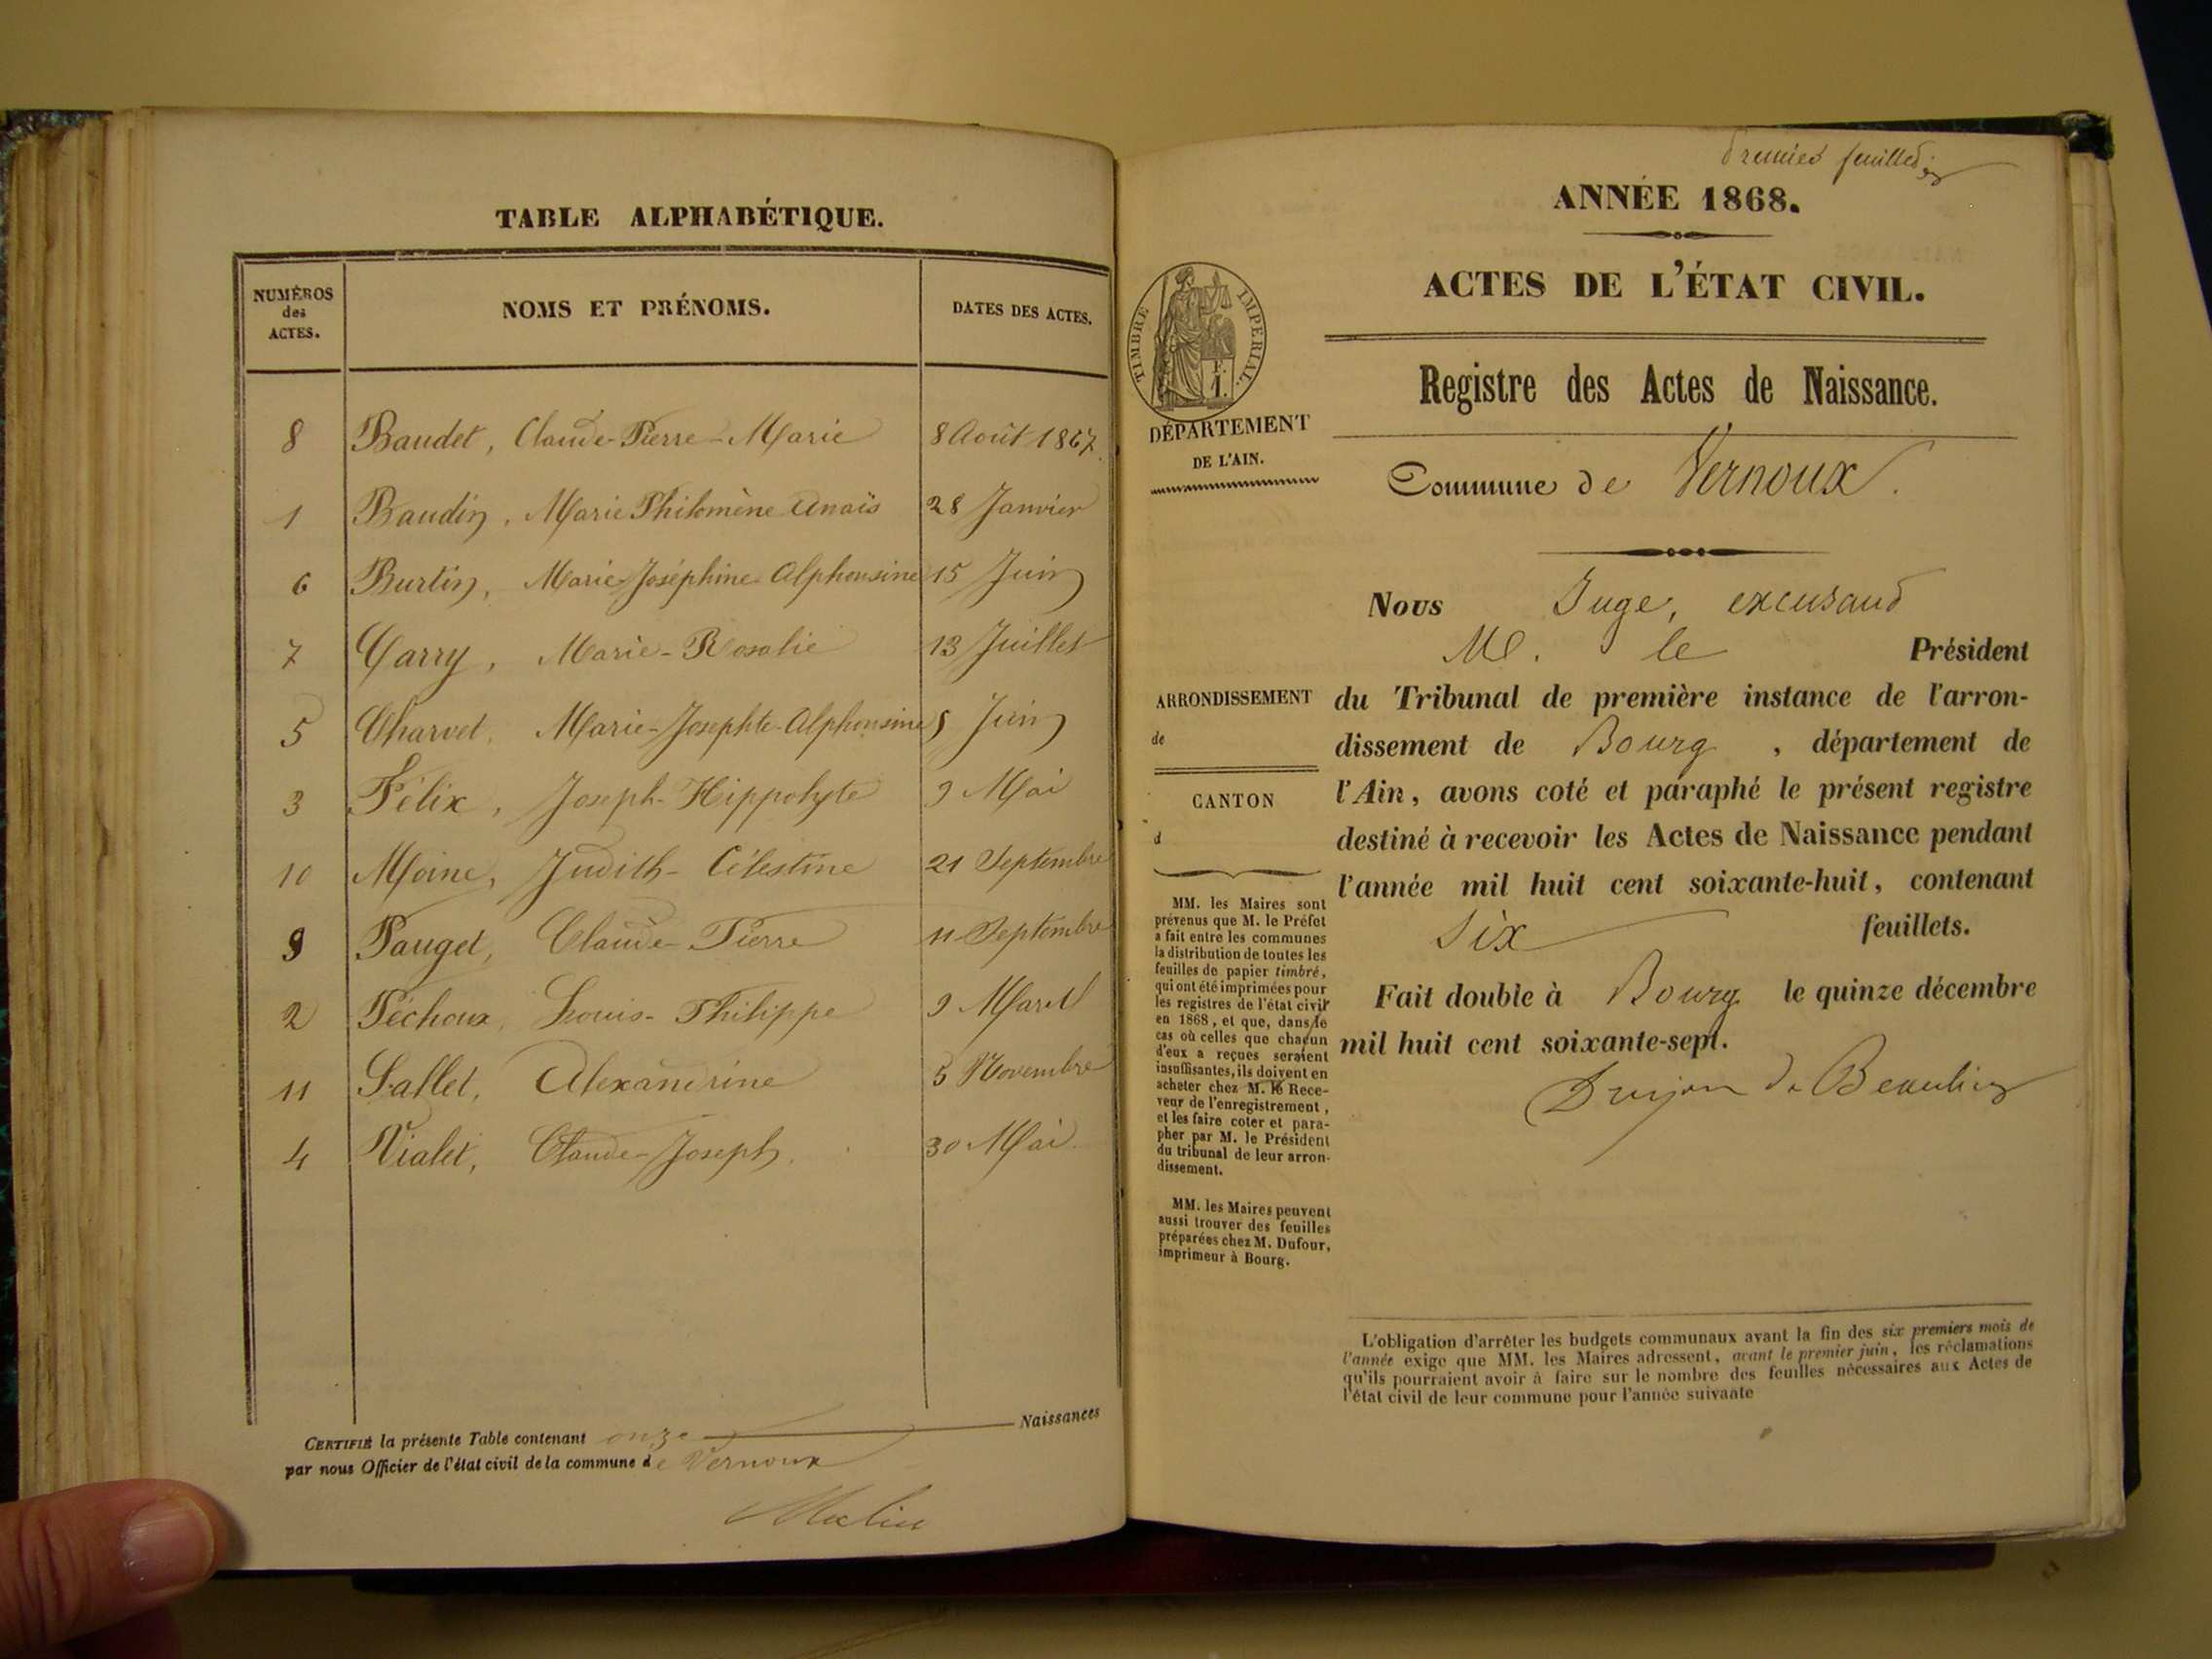 TABLE ALPHABÉTIQUE.
NUMÉROS
des
ACTES.
NOMS ET PRÉNOMS.
DATES DES ACTES.
8 Baudet, Claude-Pierre-Marie 8 Août 1867.
1 Baudin, Marie Philomène Anaïs 28 Janvier
6 Burtin, Marie-Joséphine-Alphonsine 15 Juin
7 Carry, Marie-Rosalie 13 Juillet
5 Charvet, Marie-Josephte-Alphonsine 5 Juin
3 Félix, Joseph-Hippolyte 9 Mai
10 Moine, Judith-Célestine 21 Septembre
9 Pauget, Claude-Pierre 11 Septembre
2 Péchoux, Louis-Philippe 9 Mars
11 Sallet, Alexandrine 5 Novembre
4 Vialet, Claude-Joseph. 30 Mai
CERTIFIÉ la présente Table contenant onze Naissances
par nous Officier de l'état civil de la commune de Vernoux
Premier feuillet
ANNÉE 1868.
ACTES DE L'ÉTAT CIVIL.
TIMBRE IMPERIAL.
1.
DÉPARTEMENT
DE L'AIN.
Registre des Actes de Naissance.
Commune de Vernoux.
Nous Juge, excusant
M. le Président
du Tribunal de première instance de l'arron-
dissement de Bourg, département de
l'Ain, avons coté et paraphé le présent registre
destiné à recevoir les Actes de Naissance pendant
l'année mil huit cent soixante-huit, contenant
Six feuillets.
Fait double à Bourg le quinze décembre
mil huit cent soixante-sept.
Drujon de Beaulieu
ARRONDISSEMENT
de
CANTON
d
MM. les Maires sont
prévenus que M. le Préfet
a fait entre les communes
la distribution de toutes les
feuilles de papier timbré,
qui ont été imprimées pour
les registres de l'état civil
en 1868, et que, dans le
cas où celles que chacun
d'eux a reçues seraient
insuffisantes, ils doivent en
acheter chez M. le Rece-
veur de l'enregistrement,
et les faire coter et para-
pher par M. le Président
du tribunal de leur arron-
dissement.
MM. les Maires peuvent
aussi trouver des feuilles
préparées chez M. Dufour,
imprimeur à Bourg.
L'obligation d'arrêter les budgets communaux avant la fin des six premiers mois de
l'année exige que MM. les Maires adressent, avant le premier juin, les réclamations
qu'ils pourraient avoir à faire sur le nombre des feuilles nécessaires aux Actes de
l'état civil de leur commune pour l'année suivante